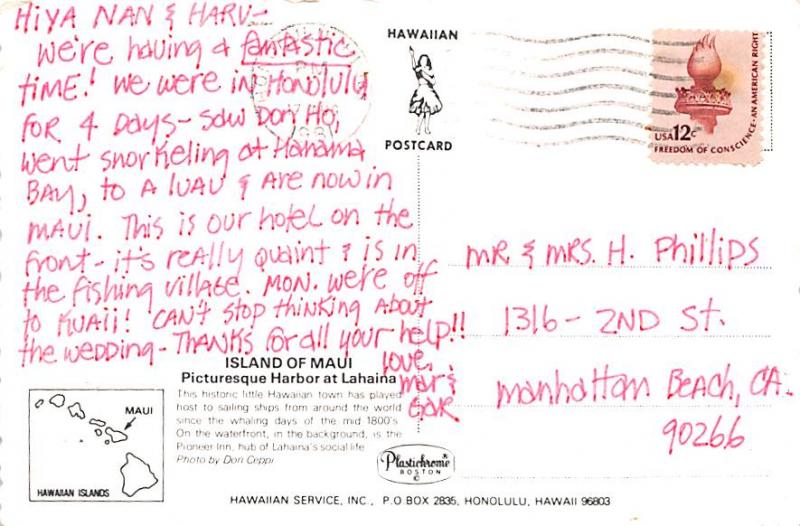 HiYA NAN & HARV-
We're having a fantastic
time! We were in Honolulu
for 4 days - saw Don Ho,
went snorkeling at Hanama
Bay, to a luau & are now in
Maui. This is our hotel on the
front - it's really quaint & is in
the fishing village. Mon. we're off
to Kuaii! Can't stop thinking about
the wedding - Thanks for all your help!!
love,
Mar &
Gar
HAWAIIAN
POSTCARD
USA 12c
FREEDOM OF CONSCIENCE - AN AMERICAN RIGHT
Mr & Mrs. H. Phillips
1316 - 2ND St.
Manhattan Beach, CA.
90266
ISLAND OF MAUI
Picturesque Harbor at Lahaina
This historic little Hawaiian town has played
host to sailing ships from around the world
since the whaling days of the mid 1800's
On the waterfront, in the background, is the
Pioneer Inn, hub of Lahaina's social life
Photo by Dori Ceppi
MAUI
HAWAIIAN ISLANDS
Plastichrome
BOSTON
©
HAWAIIAN SERVICE, INC., P.O. BOX 2835, HONOLULU, HAWAII 96803